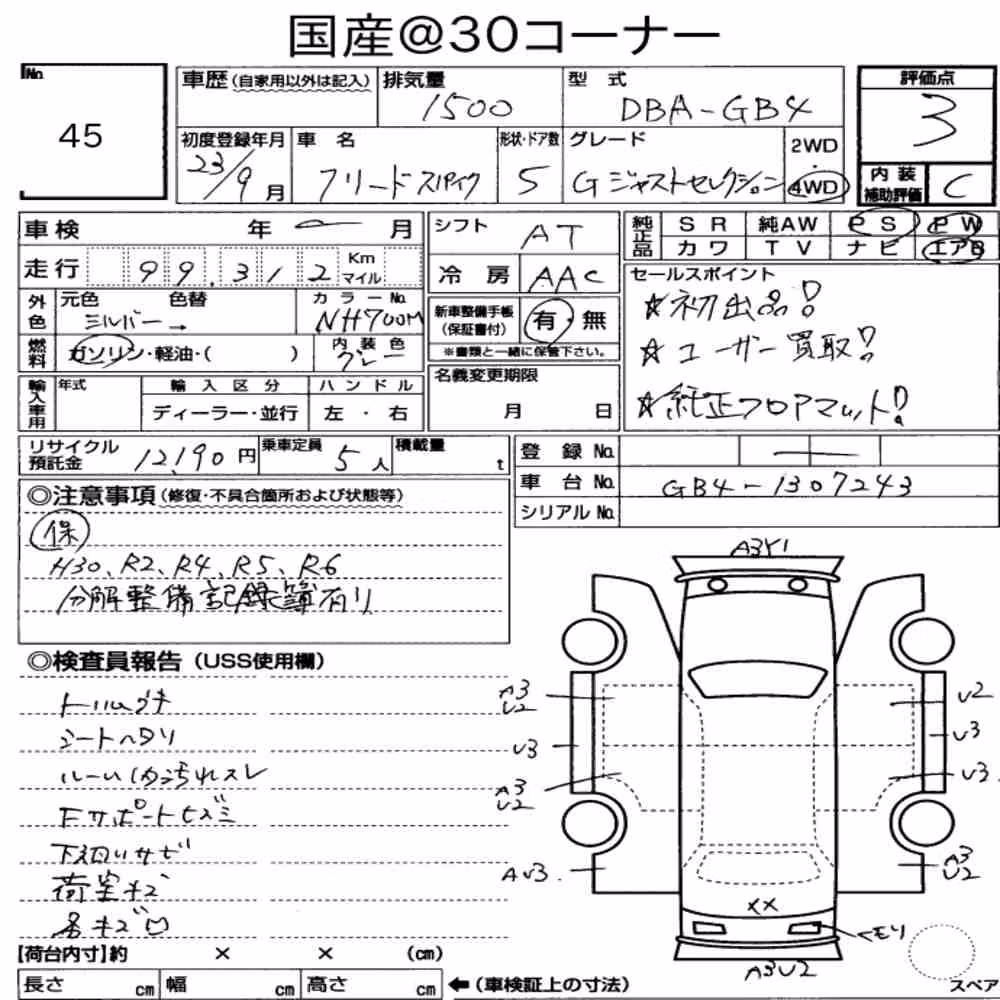 国産@30コーナー
No.
45
車歴(自家用以外は記入)
排気量
1500
型 式
DBA-GB4
評価点
3
初度登録年月
23/9月
車 名
フリードスパイク
形状・ドア数
5
グレード
Gジャストセレクション
2WD
・
4WD
内 装
補助評価
C
車検 年 月
シフト
AT
純正品
SR 純AW PS PW
カワ TV ナビ エアB
走行 99,312 Km
マイル
冷 房
AAC
セールスポイント
☆初出品!
☆ユーザー買取!
☆純正フロアマット!
外色
元色 色替
シルバー→
カラーNo.
NH700M
新車整備手帳
(保証書付)
有・無
※書類と一緒に保管下さい。
燃料
ガソリン・軽油・( )
内装色
グレー
輸入車用
年式
輸入区分
ディーラー・並行
ハンドル
左・右
名義変更期限
月 日
リサイクル
預託金
12,190円
乗車定員
5人
積載量
t
登 録 No.
車 台 No.
GB4-1307243
シリアル No.
◎注意事項(修復・不具合箇所および状態等)
保
H30、R2、R4、R5、R6
分解整備記録簿有り
◎検査員報告(USS使用欄)
シートヘタリ
ルーム内汚れスレ
Fサポートヒズミ
下廻りサビ
荷室キズ
【荷台内寸】約 × × (cm)
長さ cm 幅 cm 高さ cm
←(車検証上の寸法)
A3Y1
A3
U2
U2
U3
U3
A3
U2
U3
AU3.
A3
U2
XX
A3U2
スペア